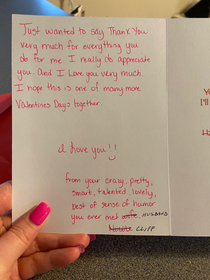 Just wanted to say Thank You
very much for everything you
do for me. I really do appreciate
you. And I Love you very much.
I hope this is one of many more
Valentines Days together
I love you!!
from your crazy, pretty,
smart, talented lovely,
best of sense of humor
you ever met wife HUSBAND
CLIFF
Yo